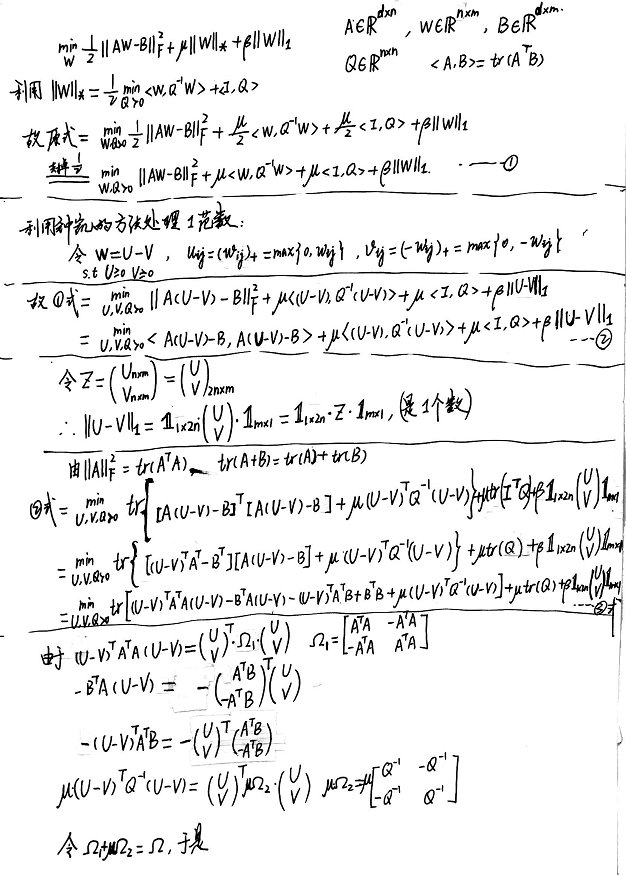 min_W ½‖AW-B‖²_F + μ‖W‖_* + β‖W‖₁    A∈ℝ^{d×n}, W∈ℝ^{n×m}, B∈ℝ^{d×m}.
Q∈ℝ^{n×n}    <A,B>=tr(AᵀB)
利用 ‖W‖_* = ½ min_{Q≻0} <W,Q⁻¹W> + <I,Q>
故原式 = min_{W,Q≻0} ½‖AW-B‖²_F + μ/2 <W,Q⁻¹W> + μ/2 <I,Q> + β‖W‖₁
= min_{W,Q≻0} ‖AW-B‖²_F + μ<W,Q⁻¹W> + μ<I,Q> + β‖W‖₁. ----①
利用 的方法处理1范数:
令 W=U-V, u_{ij}=(w_{ij})₊=max{0,w_{ij}}, v_{ij}=(-w_{ij})₊=max{0,-w_{ij}}
s.t U≥0 V≥0
故①式 = min_{U,V,Q≻0} ‖A(U-V)-B‖²_F + μ<(U-V),Q⁻¹(U-V)> + μ<I,Q> + β‖U-V‖₁
= min_{U,V,Q≻0} <A(U-V)-B, A(U-V)-B> + μ<(U-V),Q⁻¹(U-V)> + μ<I,Q> + β‖U-V‖₁ ----②
令 Z = (U_{n×m} V_{n×m}) = (U V)_{2n×m}
∴ ‖U-V‖₁ = 𝟙_{1×2n}(U V)·𝟙_{m×1} = 𝟙_{1×2n}·Z·𝟙_{m×1}, (是1个数)
由‖A‖²_F = tr(AᵀA) tr(A+B)=tr(A)+tr(B)
②式 = min_{U,V,Q≻0} tr{[A(U-V)-B]ᵀ[A(U-V)-B] + μ(U-V)ᵀQ⁻¹(U-V)} + μtr(IᵀQ) + β𝟙_{1×2n}(U V)𝟙_{m×1}
= min_{U,V,Q≻0} tr{[(U-V)ᵀAᵀ-Bᵀ][A(U-V)-B] + μ(U-V)ᵀQ⁻¹(U-V)} + μtr(Q) + β𝟙_{1×2n}(U V)𝟙_{m×1}
= min_{U,V,Q≻0} tr[(U-V)ᵀAᵀA(U-V) - BᵀA(U-V) - (U-V)ᵀAᵀB + BᵀB + μ(U-V)ᵀQ⁻¹(U-V)] + μtr(Q) + β𝟙_{1×2n}(U V)𝟙_{m×1}
----③式
由于 (U-V)ᵀAᵀA(U-V) = (U V)ᵀ·Ω₁·(U V)    Ω₁ = [AᵀA -AᵀA -AᵀA AᵀA]
-BᵀA(U-V) = -(AᵀB -AᵀB)ᵀ(U V)
-(U-V)ᵀAᵀB = -(U V)ᵀ(AᵀB -AᵀB)
μ(U-V)ᵀQ⁻¹(U-V) = (U V)ᵀμΩ₂·(U V)    μΩ₂=μ[Q⁻¹ -Q⁻¹ -Q⁻¹ Q⁻¹]
令 Ω₁+μΩ₂=Ω, 于是